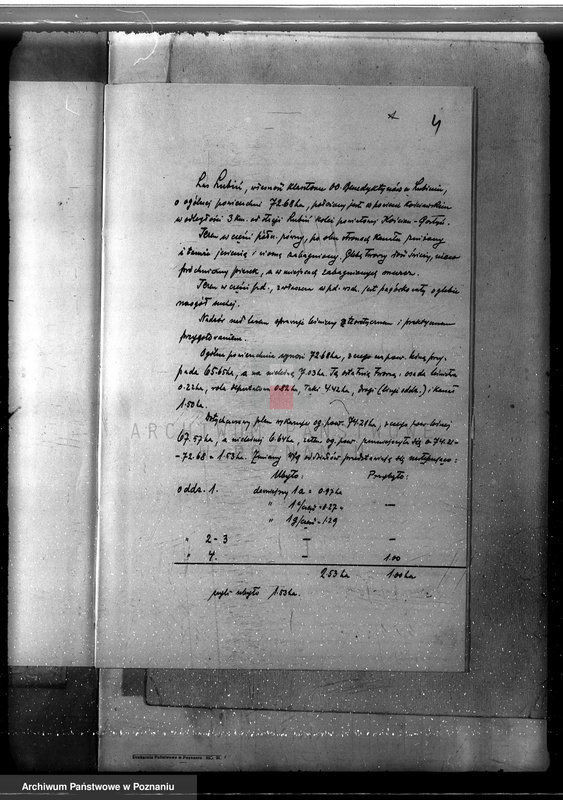 4
Las Lubiń, własność klasztoru OO Benedyktynów w Lubiniu,
o ogólnej powierzchni 72.68 ha, położony jest w powiecie kościańskim
w odległości 3 km. od stacji Lubiń kolei powiatowej Kościan - Gostyń.
Teren w części półn. równy, po obu stronach kanału
i wiosną zabagniony. Glebę tworzy dość świeży,
próchniczny piasek, a w miejscach zabagnionych
Teren w części pd., zwłaszcza w pd. wsch. jest pagórkowaty o glebie
naogół suchej.
Nadzór nad lasem sprawuje leśniczy z teoretycznem i praktycznem
przygotowaniem.
Ogólna powierzchnia wynosi 72.68 ha, z czego na pow. leśną przy-
pada 65.65 ha, a na nieleśną 7.03 ha. Tę ostatnią tworzą: osada leśnictwa
0.22 ha, rola deputatowa 0.82 ha, łąki 4.42 ha, drogi (linje oddz.) i kanał
1.50 ha.
Dotychczasowy plan wykazuje og. pow. 74.21 ha, z czego pow. leśnej
67.57 ha, a nieleśnej 6.64 ha, zatem og. pow. zmniejszyła się o 74.21 -
- 72.68 = 1.53 ha. Zmiany wg oddziałów przedstawiają się następująco:
Ubyło: Przybyło:
oddz. 1. dawniejszy 1a = 0.97 ha
" 1 c/część = 0.27 " —
" 1 g/część = 1.29
" 2 - 3 — —
" 4. — 1.00
2.53 ha 1.00 ha
czyli ubyło 1.53 ha.
Drukarnia Państwowa w Poznaniu
Archiwum Państwowe w Poznaniu